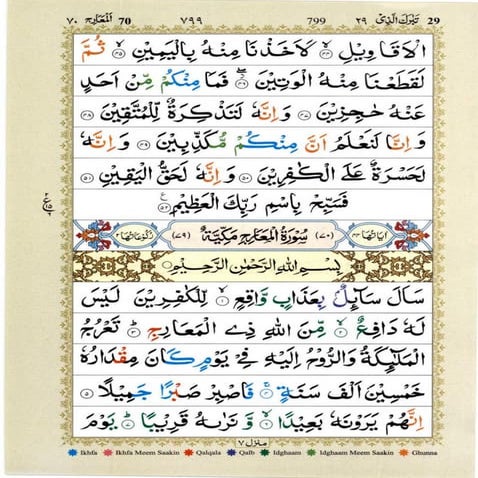 29 تَبٰرَكَ الَّذِیْ ٢٩ 799 ٧٩٩ 70 اَلْمَعَارِج ٧٠
الْاَقَاوِیْلِ ۙ﴿٤٤﴾ لَاَخَذْنَا مِنْهُ بِالْیَمِیْنِ ۙ﴿٤٥﴾ ثُمَّ
لَقَطَعْنَا مِنْهُ الْوَتِیْنَ ۫ۖ﴿٤٦﴾ فَمَا مِنْكُمْ مِّنْ اَحَدٍ
عَنْهُ حٰجِزِیْنَ ﴿٤٧﴾ وَ اِنَّهٗ لَتَذْكِرَةٌ لِّلْمُتَّقِیْنَ ﴿٤٨﴾
وَ اِنَّا لَنَعْلَمُ اَنَّ مِنْكُمْ مُّكَذِّبِیْنَ ﴿٤٩﴾ وَ اِنَّهٗ
لَحَسْرَةٌ عَلَی الْكٰفِرِیْنَ ﴿٥٠﴾ وَ اِنَّهٗ لَحَقُّ الْیَقِیْنِ ﴿٥١﴾
فَسَبِّحْ بِاسْمِ رَبِّكَ الْعَظِیْمِ ﴿٥٢﴾
اٰیَاتُهَا ٤٤ (٧٠) سُوْرَةُ الْمَعَارِجِ مَكِّیَّةٌ (٧٩) رُكُوْعَاتُهَا ٢
بِسْمِ اللّٰهِ الرَّحْمٰنِ الرَّحِیْمِ
سَاَلَ سَآىِٕلٌۢ بِعَذَابٍ وَّاقِعٍ ۙ﴿١﴾ لِّلْكٰفِرِیْنَ لَیْسَ
لَهٗ دَافِعٌ ۙ﴿٢﴾ مِّنَ اللّٰهِ ذِی الْمَعَارِجِ ؕ﴿٣﴾ تَعْرُجُ
الْمَلٰٓىِٕكَةُ وَالرُّوْحُ اِلَیْهِ فِیْ یَوْمٍ كَانَ مِقْدَارُهٗ
خَمْسِیْنَ اَلْفَ سَنَةٍ ۚ﴿٤﴾ فَاصْبِرْ صَبْرًا جَمِیْلًا ﴿٥﴾
اِنَّهُمْ یَرَوْنَهٗ بَعِیْدًا ۙ﴿٦﴾ وَّ نَرٰىهُ قَرِیْبًا ؕ﴿٧﴾ یَوْمَ
منزل ٧
Ikhfa Ikhfa Meem Saakin Qalqala Qalb Idghaam Idghaam Meem Saakin Ghunna